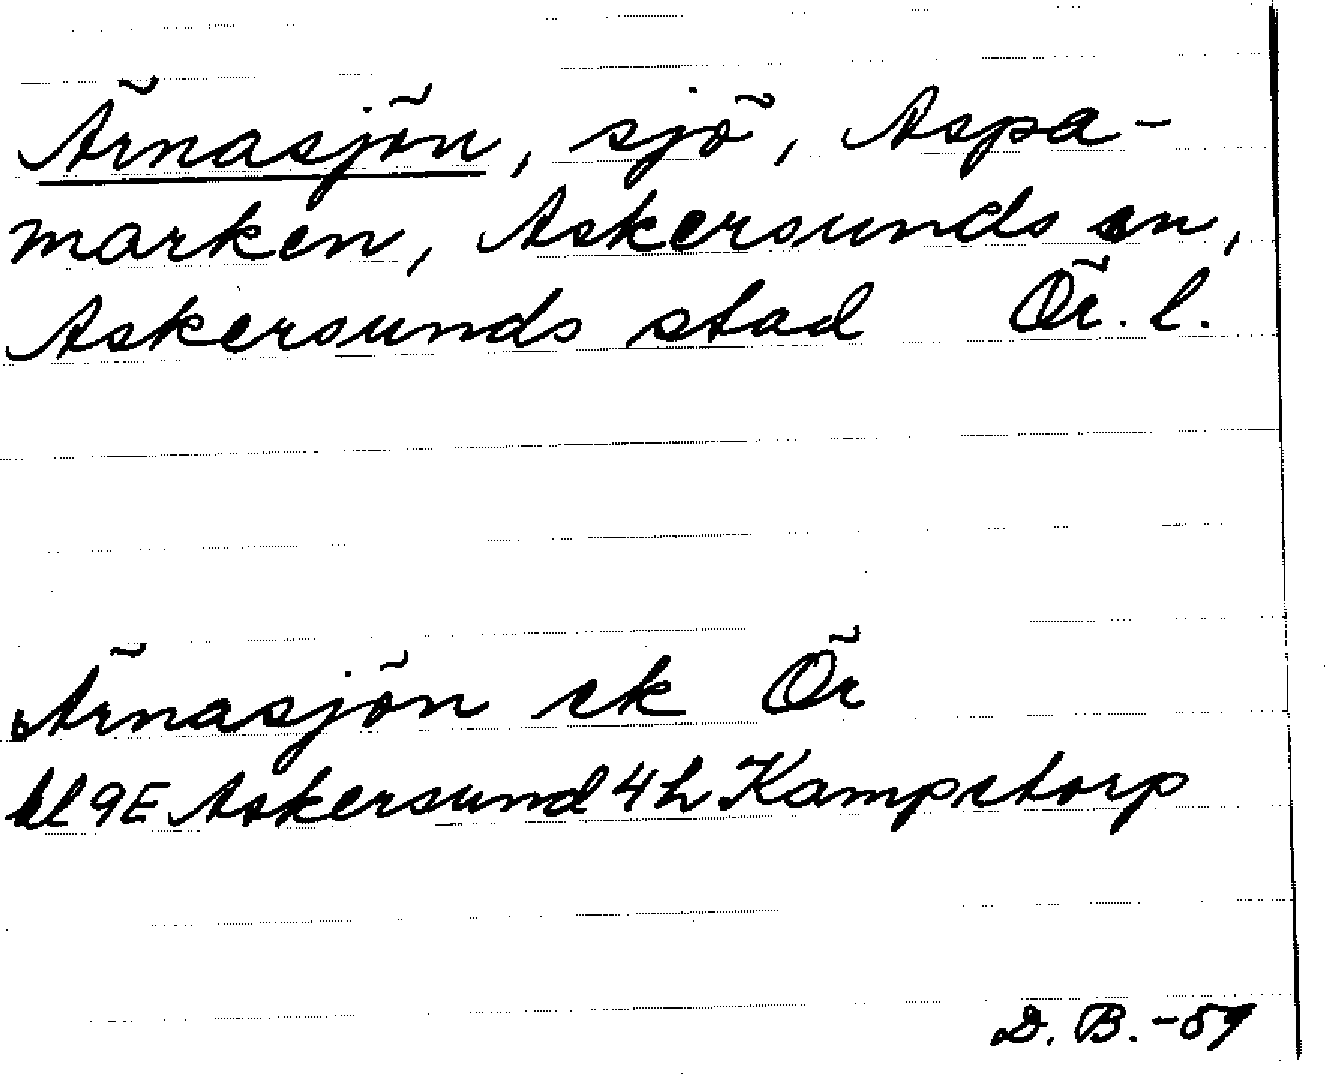 Ärnasjön, sjö, Aspa-
marken, Askersunds sn,
Askersunds stad Ör. l.
Ärnasjön ek Ör
bl 9E Askersund 4h Kampetorp
D. B. -59